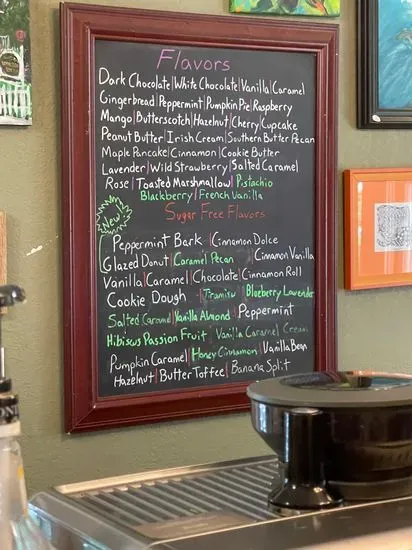 Flavors
Dark Chocolate|White Chocolate|Vanilla|Caramel
Gingerbread|Peppermint|Pumpkin Pie|Raspberry
Mango|Butterscotch|Hazelnut|Cherry|Cupcake
Peanut Butter|Irish Cream|Southern Butter Pecan
Maple Pancake|Cinnamon|Cookie Butter
Lavender|Wild Strawberry|Salted Caramel
Rose|Toasted Marshmallow|Pistachio
Blackberry|French Vanilla
Sugar Free Flavors
New!
Peppermint Bark|Cinnamon Dolce
Glazed Donut|Caramel Pecan|Cinnamon Vanilla
Vanilla|Caramel|Chocolate|Cinnamon Roll
Cookie Dough|Tramisu|Blueberry Lavender
Salted Caramel|Vanilla Almond|Peppermint
Hibiscus Passion Fruit|Vanilla Caramel Cream
Pumpkin Caramel|Honey Cinnamon|Vanilla Bean
Hazelnut|Butter Toffee|Banana Split